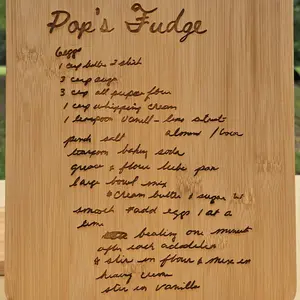 Pop's Fudge
6 eggs
1 cup butter 2 stick
3 cup suga
3 cup all purpose flour
1 cup whipping cream
1 teaspoon vanill - less almot
almond / lemon
pinch salt
teaspoon baking soda
grease & flour tube pan
large bowl mix
cream butter & sugar
smooth add eggs 1 at a
time
beating one minute
after each addition
& stir in flour & mix in
heavy creme
stir in vanilla